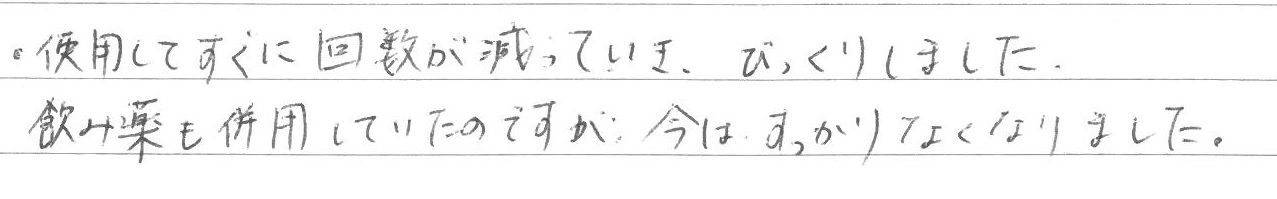 ・使用してすぐに回数が減っていき、びっくりしました.
飲み薬も併用していたのですが、今は すっかりなくなりました。